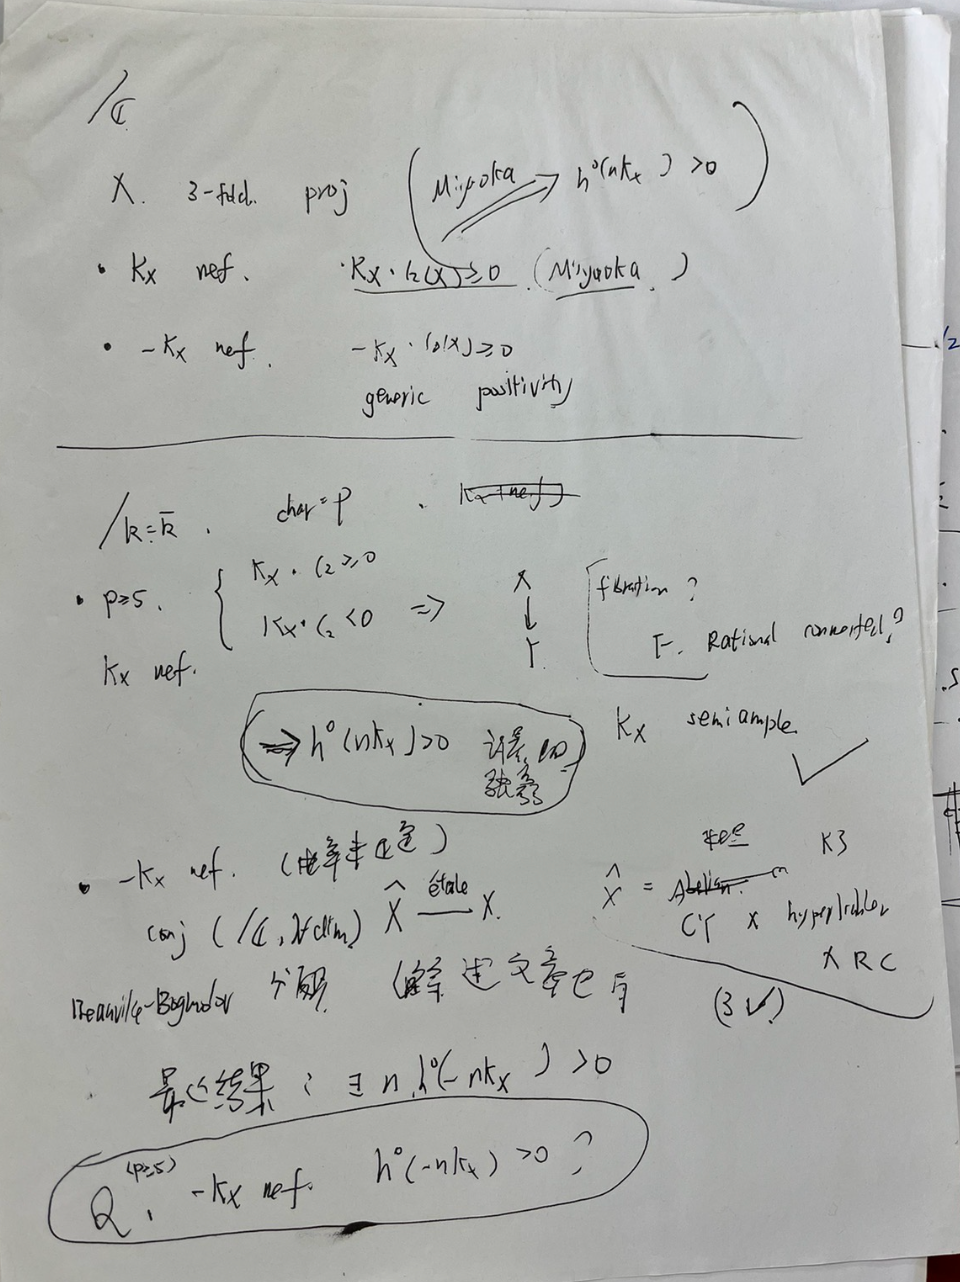 /ℂ
X. 3-fold. proj (Miyaoka ⟹ h⁰(nKx) >0)
• Kx nef. Kx·c₂(X)≥0. (Miyaoka.)
• -Kx nef. -Kx·c₂(X)≥0
generic positivity
/k=k̄. char=p.
• p≥5. { Kx·c₂≥0
Kx·c₂<0 ⟹ X ↓ Y.
[fibration ?
F. Rational connected.?
Kx nef.
⟹ h⁰(nKx)>0
Kx semiample ✓
• -Kx nef.
K3
conj (/ℂ, ∀dim) X̂ —étale→ X.
X̂ =
CY × hyperkähler
× RC
Beauville-Bogmolov 分解
(3 ✓)
最近结果: ∃ n, h⁰(-nKx) >0
Q. (p≥5) -Kx nef. h⁰(-nKx) >0 ?